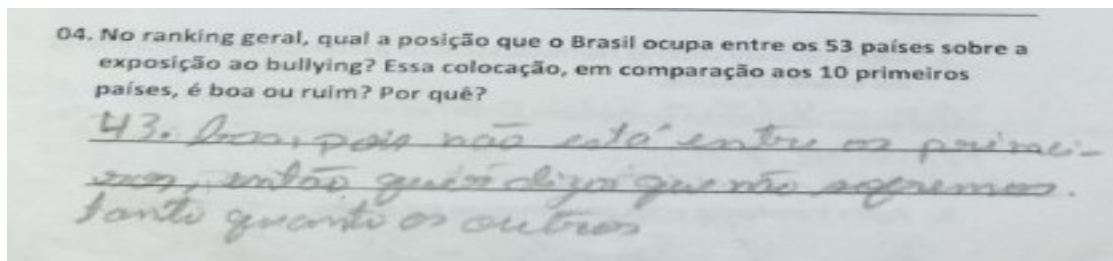 04. No ranking geral, qual a posição que o Brasil ocupa entre os 53 países sobre a
exposição ao bullying? Essa colocação, em comparação aos 10 primeiros
países, é boa ou ruim? Por quê?
43. boa, pois não está entre os primei-
ros, então quer dizer que não sofremos.
tanto quanto os outros